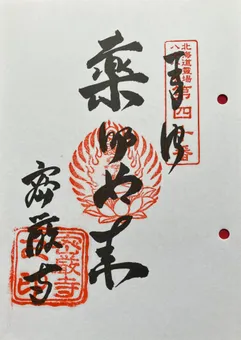 奉拝
北海道霊場
八十八
第四十番
薬師如来
密厳寺
密厳寺